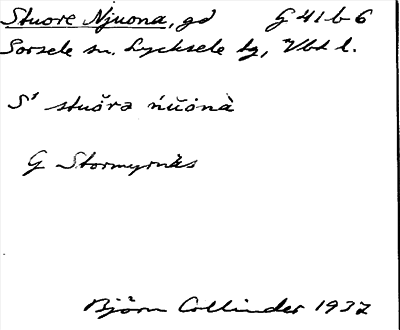 Stuore Njuona, gd G 41 b 6
Sorsele sn. Lycksele tg, Vbt l.
S¹ stuŏrə ńŭȯnà
G Stormyrnäs
Björn Collinder 1937